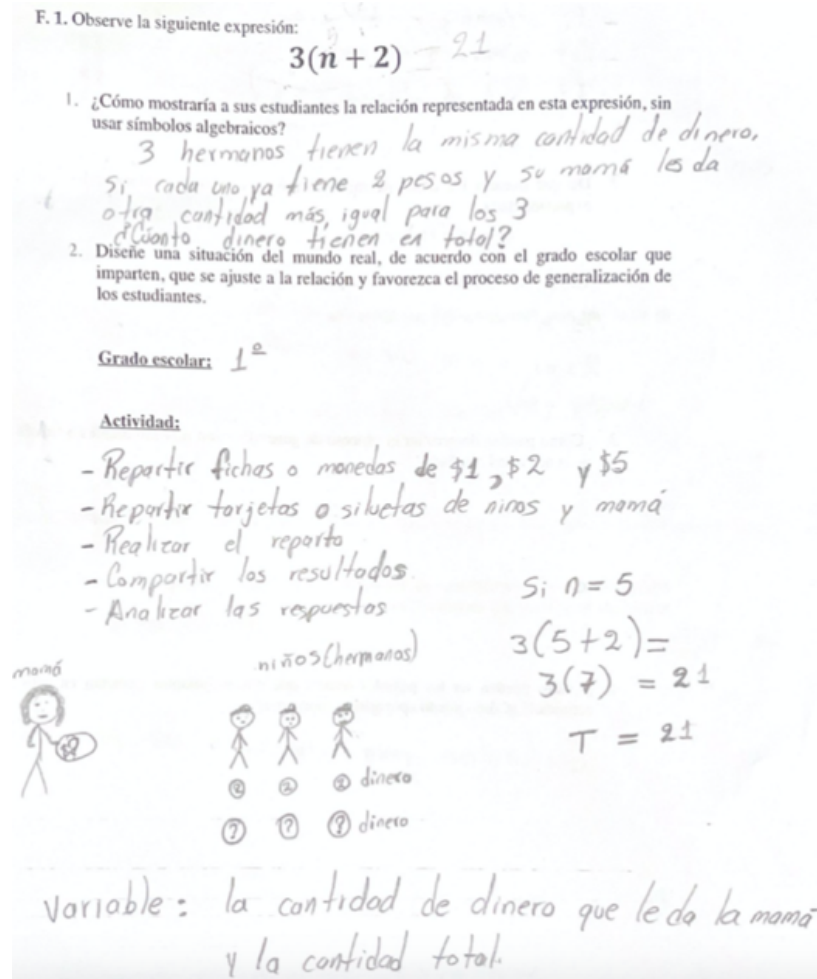 F. 1. Observe la siguiente expresión:
3(n + 2) = 21
1. ¿Cómo mostraría a sus estudiantes la relación representada en esta expresión, sin
usar símbolos algebraicos?
3 hermanos tienen la misma cantidad de dinero,
Si cada uno ya tiene 2 pesos y su mamá les da
otra cantidad más, igual para los 3
¿Cuanto dinero tienen en total?
2. Diseñe una situación del mundo real, de acuerdo con el grado escolar que
imparten, que se ajuste a la relación y favorezca el proceso de generalización de
los estudiantes.
Grado escolar: 1º
Actividad:
- Repartir fichas o monedas de $1, $2 y $5
- Repartir tarjetas o siluetas de ninos y mamá
- Realizar el reparto
- Compartir los resultados.
- Analizar las respuestas
Si n = 5
3(5+2)=
3(7) = 21
T = 21
mamá
niños(hermanos)
$?
2 2 2 dinero
? ? ? dinero
Variable: la cantidad de dinero que le da la mamá
y la cantidad total.